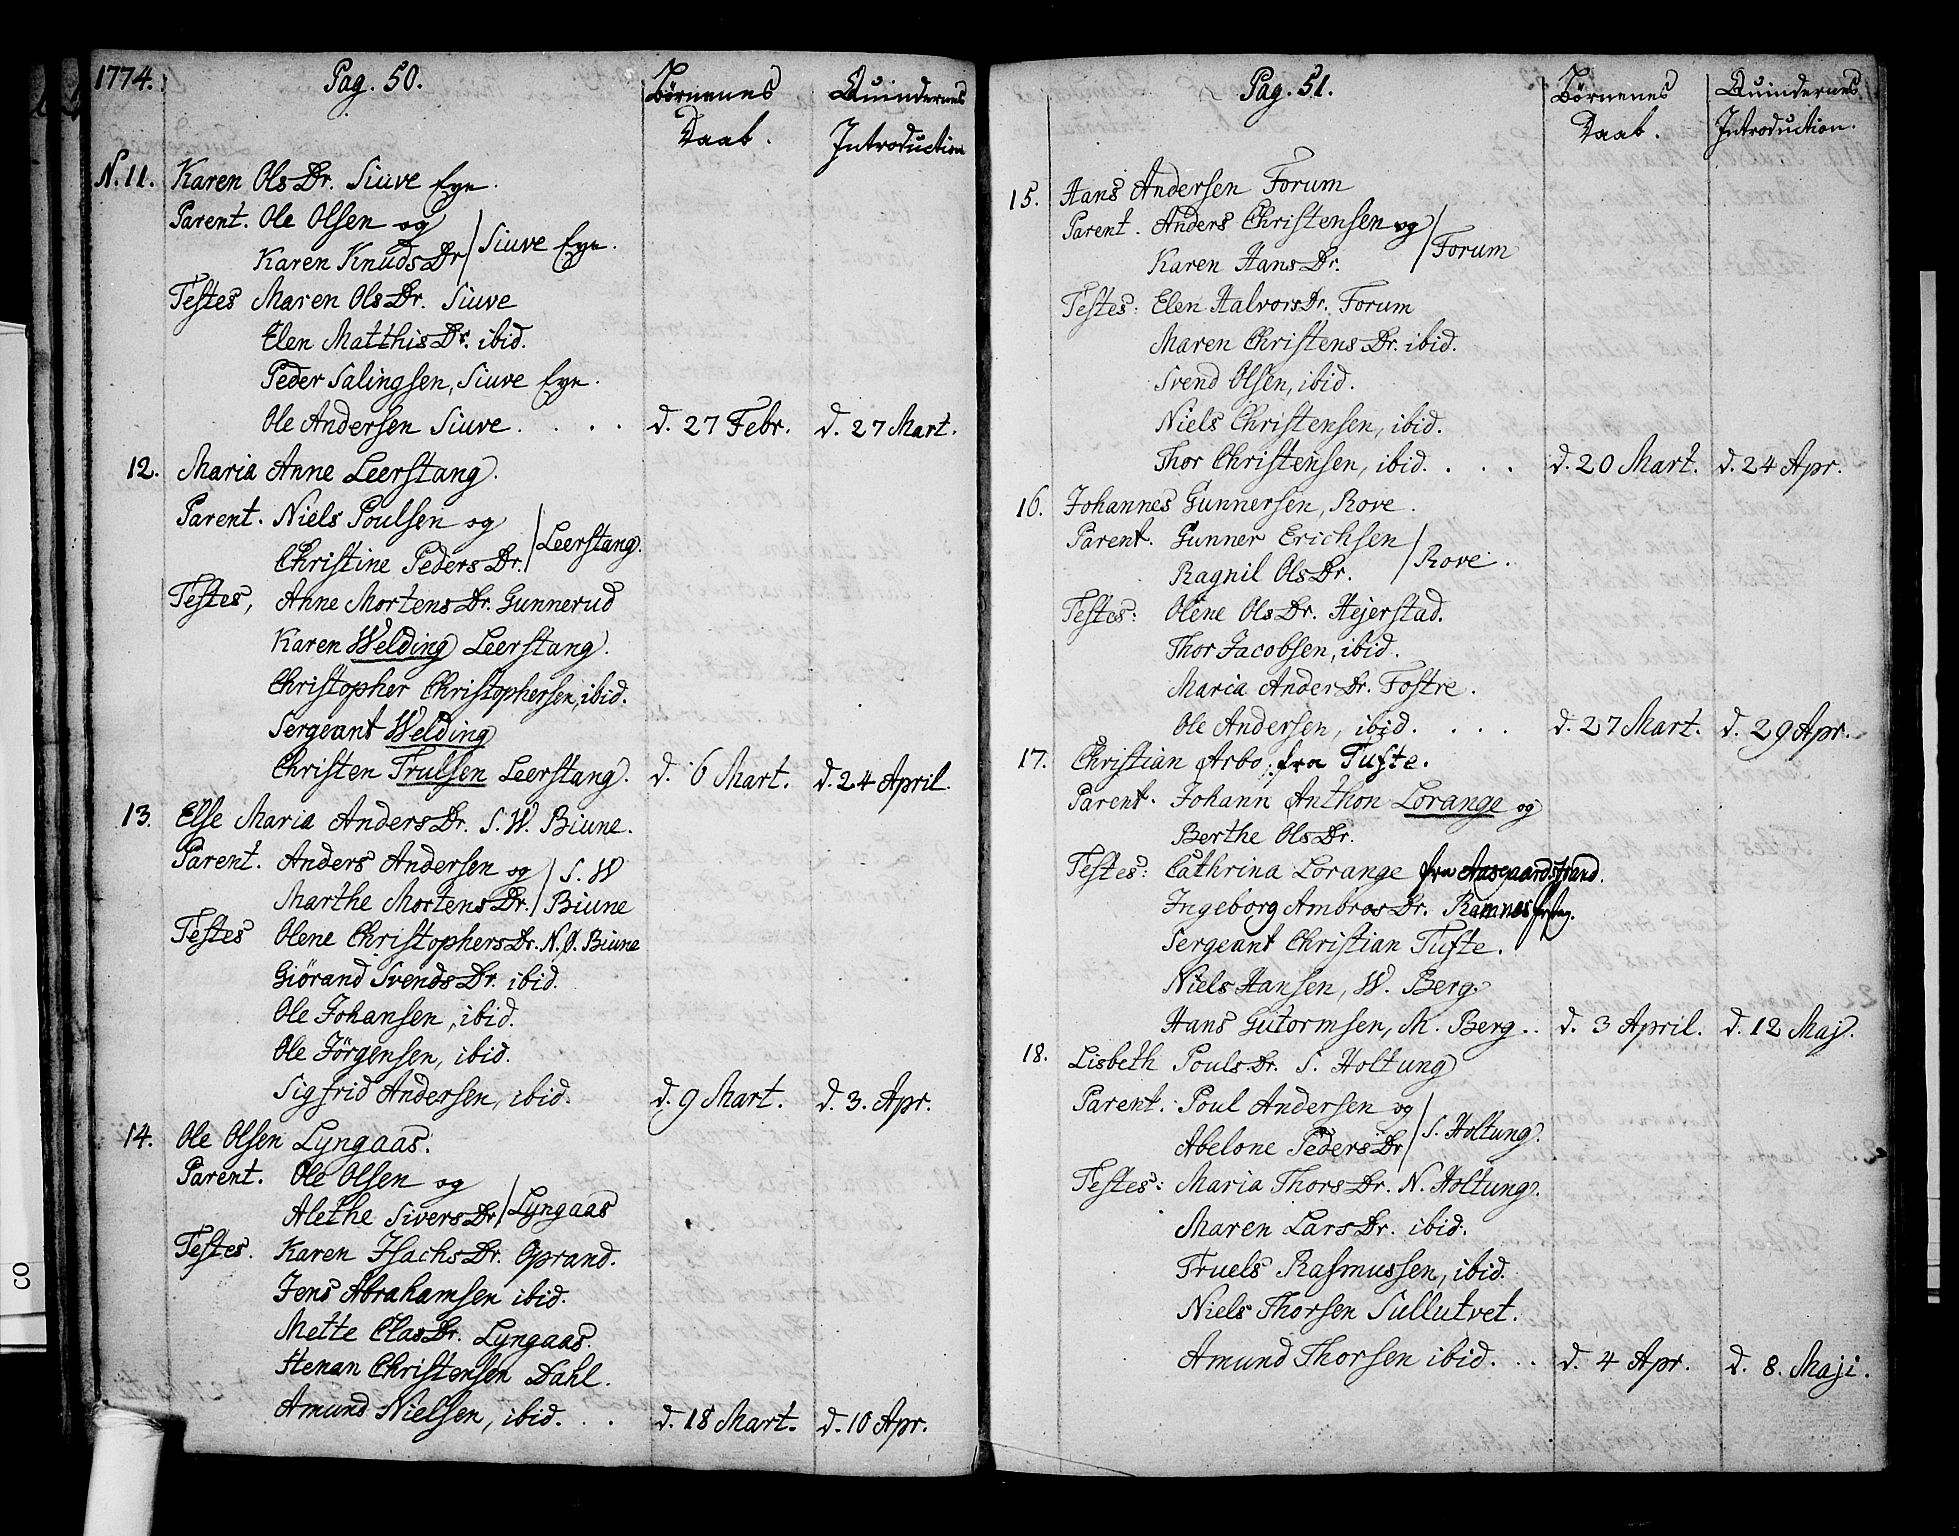 1774.
Pag. 50.
Børnenes
Daab.
Quindernes
Introduction
N. 11. Karen OlsDr. Siuve Eye.
Parent. Ole Olsen og
Karen KnudsDr Siuve Eye.
Testes Maren OlsDr. Siuve
Elen MatthisDr. ibid.
Peder Salingsen, Siuve Eye.
Ole Andersen Siuve . . . . d. 27 Febr. d. 27 Mart.
12. Maria Anne Leerstang.
Parent. Niels Poulsen og
Christine PedersDr. Leerstang.
Testes, Anne MortensDr. Gunnerud
Karen Welding Leerstang.
Christopher Christophersen, ibid.
Sergeant Welding
Christen Trulsen Leerstang. d. 6 Mart. d. 24 April.
13. Else Maria AndersDr. S. W. Biune.
Parent. Anders Andersen og S. W
Marthe MortensDr. Biune
Testes Olene ChristophersDr. N. Ø. Biune
Giörand SvendsDr. ibid.
Ole Johansen, ibid.
Ole Jörgensen, ibid.
Sigfrid Andersen, ibid. d. 9 Mart. d. 3. Apr.
14. Ole Olsen Lyngaas.
Parent. Ole Olsen og
Alethe SiversDr Lyngaas
Testes. Karen IsachsDr. Oprand.
Jens Abrahamsen ibid.
Mette ClasDr. Lyngaas.
Stenan Christensen Dahl.
Amund Nielsen, ibid. . . d. 18 Mart. d. 10 Apr.
Pag. 51.
Børnenes
Daab.
Quindernes
Introduction.
15. Hans Andersen Forum
Parent. Anders Christensen og
Karen HansDr. Forum
Testes: Elen HalvorsDr. Forum
Maren ChristensDr. ibid.
Svend Olsen, ibid.
Niels Christensen, ibid.
Thor Christensen, ibid. . . . d. 20 Mart. d. 24 Apr.
16. Johannes Gunnersen, Rove.
Parent. Gunner Erichsen
Ragnil OlsDr. Rove.
Testes: Olene OlsDr. Hejerstad.
Thor Jacobsen, ibid.
Maria AnderDr. Fostre.
Ole Andersen, ibid. . . . d. 27 Mart. d. 29 Apr.
17. Christian Arbo fra Tufte.
Parent. Johann Anthon Lorange og
Berthe OlsDr.
Testes: Cathrina Lorange fra Aasgaardstrand.
Ingeborg AmbrosDr. Ramnes
Sergeant Christian Tufte.
Niels Hansen, W. Berg.
Hans Gutormsen, M. Berg .. d. 3 April. d. 12 Maj.
18. Lisbeth PoulsDr. S. Holtung
Parent. Poul Andersen og
Abelone PedersDr S. Holtung.
Testes: Maria ThorsDr. N. Holtung.
Maren LarsDr. ibid.
Truels Rasmussen, ibid.
Niels Thorsen Sullutvet.
Amund Thorsen ibid. . . d. 4 Apr. d. 8. Maji.